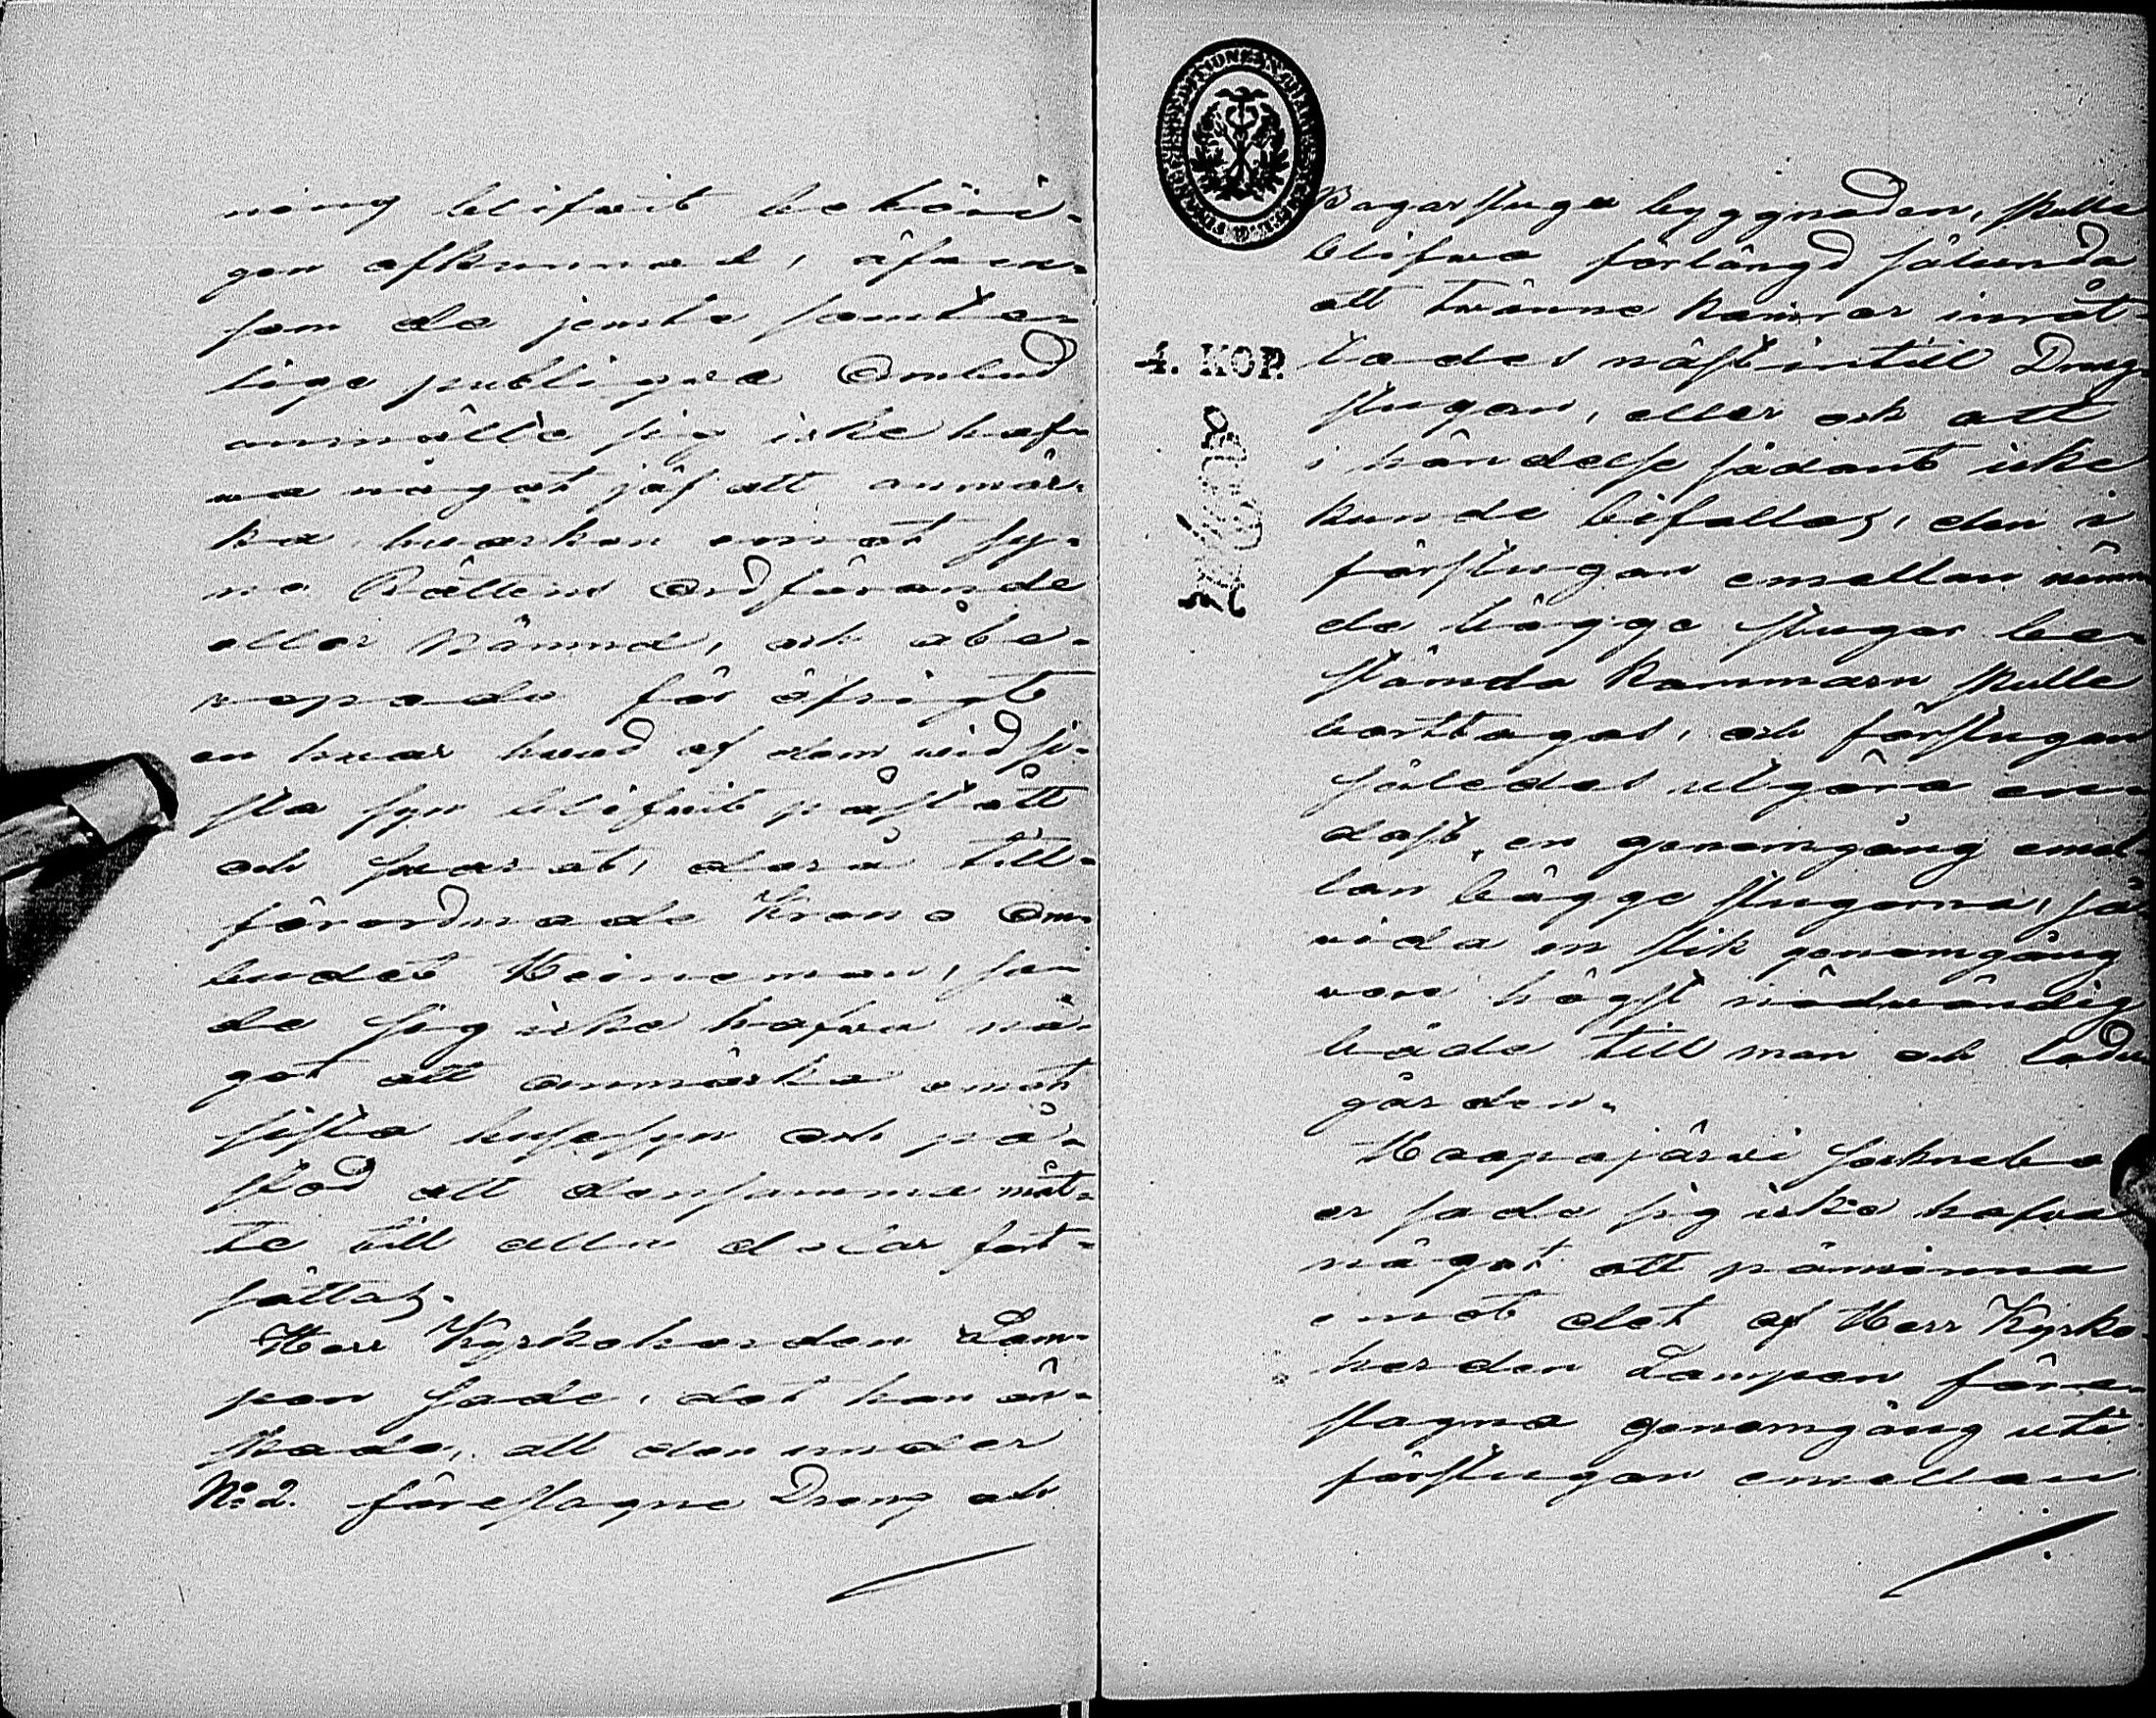 ning blifvit behöri-
gen afkunnad, äfven-
som de jemte samte-
lige publiqve Ombud
anmälte sig icke haf-
va något jäf att anmär-
ka hvarken emot Sy-
ne Rättens Ordförande
eller Nämnd, och åbe-
ropade för öfrigt
en hvar hvad af dem vid si-
sta syn blifvit påstått
och svarat, derå till-
förordnade Krono Om-
budet Heineman, sa-
de sig icke hafva nå-
got att anmärka emot
sista husesyn och på-
stod att densamma måt-
te till alla delar fast-
ställas.
Herr Kyrkoherden Lam-
pen sade, det han ön-
skade, att den under
No 2. föreslagne Dräng och
Bagarstugu byggnaden, skulle
blifva förlängd sålunda
att tvänne kamrar inrät-
tades näst intill Dräng-
stugan, eller och att
i händelse sådant icke
kunde bifallas, den i
förstugan emellan nämn
de bägge stugor be-
stämda Kammarn skulle
borttagas, och förstugan
således utgöra en-
dast en genomgång emel-
lan bägge stugorna, så
vida en slik genomgång
vore högst nödvändig
både till man och Ladu
gården.
Haapajärvi sockneboe
er sade sig icke hafva
något att påminna
emot det af Herr Kyrko
herden Lampen före-
slagna genomgång uti
förstugan emellan
4. KOP.